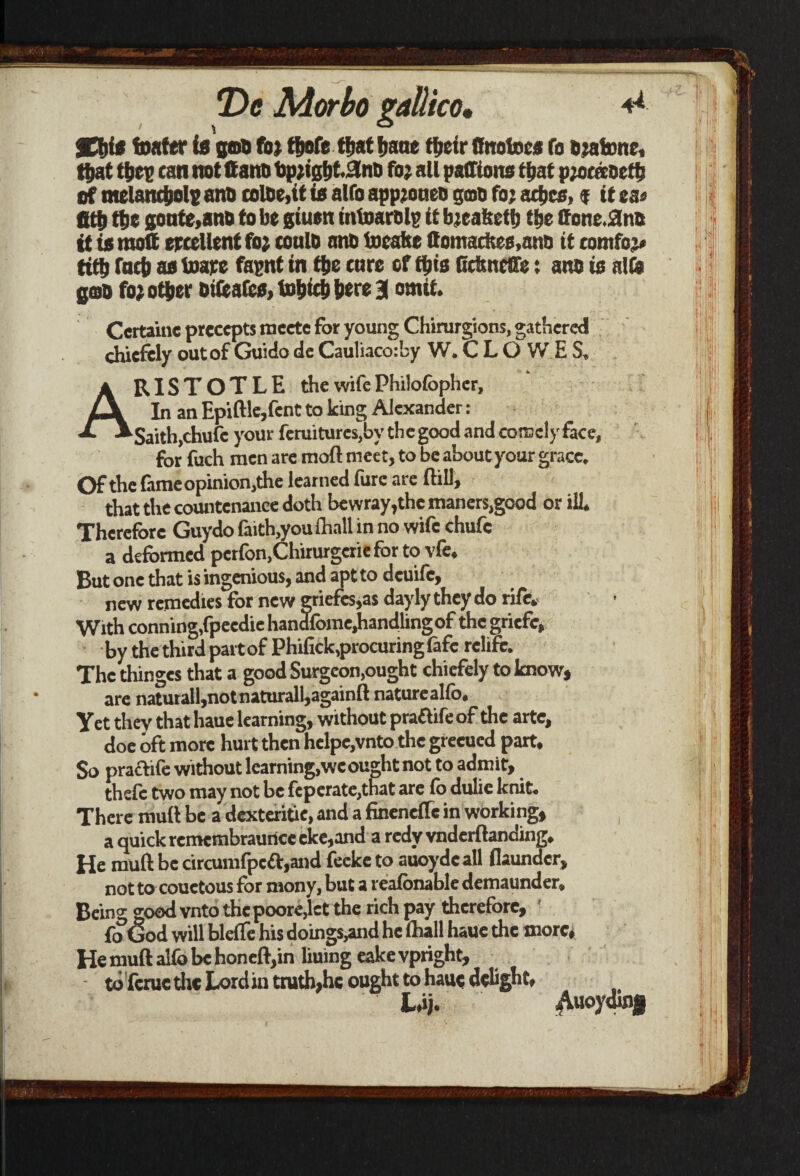 De Morbo gallico. 44
This water is good for those that haue their sinowes so drawne,
that they can not stand vpright. And for all passions that proceedeth
of melancholy and colde, it is also approued good for aches, & it ea-
seth the goute, and to be giuen inwardly it breaketh the stone. And
it is most excellent for could and weake stomackes, and it comfor-
teth such as waxe faynt in the cure of this sicknesse: and is also
good for other diseases, which here I omit.
Certaine precepts meete for young Chirurgions, gathered
chiefely out of Guido de Cauliaco: by W. CLOWES.
ARISTOTLE the wise Philosopher,
In an Epistle, sent to king Alexander:
Saith, chuse your seruitures, by the good and comely face,
for such men are most meet, to be about your grace.
Of the same opinion, the learned sure are still,
that the countenance doth bewray, the maners, good or ill.
Therefore Guydo saith, you shall in no wise chuse
a deformed person, Chirurgerie for to vse.
But one that is ingenious, and apt to deuise,
new remedies for new griefes, as dayly they do rise.
With conning, speedie handsome, handling of the griefe,
by the third part of Phisick, procuring safe relife.
The thinges that a good Surgeon, ought chiefely to know,
are naturall, not naturall, against nature also.
Yet they that haue learning, without practise of the arte,
doe oft more hurt then helpe, vnto the greeued part.
So practise without learning, we ought not to admit,
these two may not be seperate, that are so dulie knit.
There must be a dexteritie, and a finenesse in working,
a quick remembraunce eke, and a redy vnderstanding.
He must be circumspect, and seeke to auoyde all slaunder,
not to couetous for mony, but a reasonable demaunder.
Being good vnto the poore, let the rich pay therefore,
so God will blesse his doings, and he shall haue the more.
He must also be honest, in liuing eake vpright,
to serue the Lord in truth, he ought to haue delight,
L.ij. Auoyding